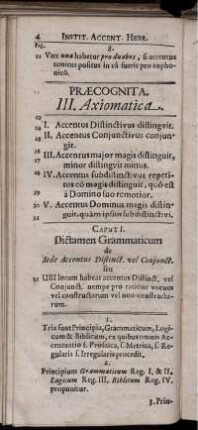 4 INSTIT. ACCENT. HEBR.
8.
Vox una habetur pro duabus, si accentus
tonicus positus in eâ fuerit pro eupho-
nico.
PRÆCOGNITA.
III. Axiomatica.
I. Accentus Distinctivus distingvit.
II. Accentus Conjunctivus conjun-
git.
III. Accentus major magis distinguit,
minor distingvit minus.
IV. Accentus subdistinct. vus repeti-
tus eò magis distinguit, quò est
à Domino suo remotior.
V. Accentus Dominus magis distin-
guit, quàm ipsius subdistinctivi.
CAPUT I.
Dictamen Grammaticum
de
Sede Accentus Distinct. vel Conjunct.
seu
UBI locum habeat accentus Distinct. vel
Conjunct. nempe pro ratione vocum
vel constructarum vel non-constructa-
rum.
1.
Tria sunt Principia, Grammaticum, Logi-
cum & Biblicum, ex quibus omnis Ac-
centuatio s. Prosaica, s. Metrica, s. Re-
gularis s. Irregularis procedit.
2.
Principium Grammaticum Reg. I, & II.
Logicum Reg. III. Biblicum Reg. IV.
proponitur.
3. Prin-